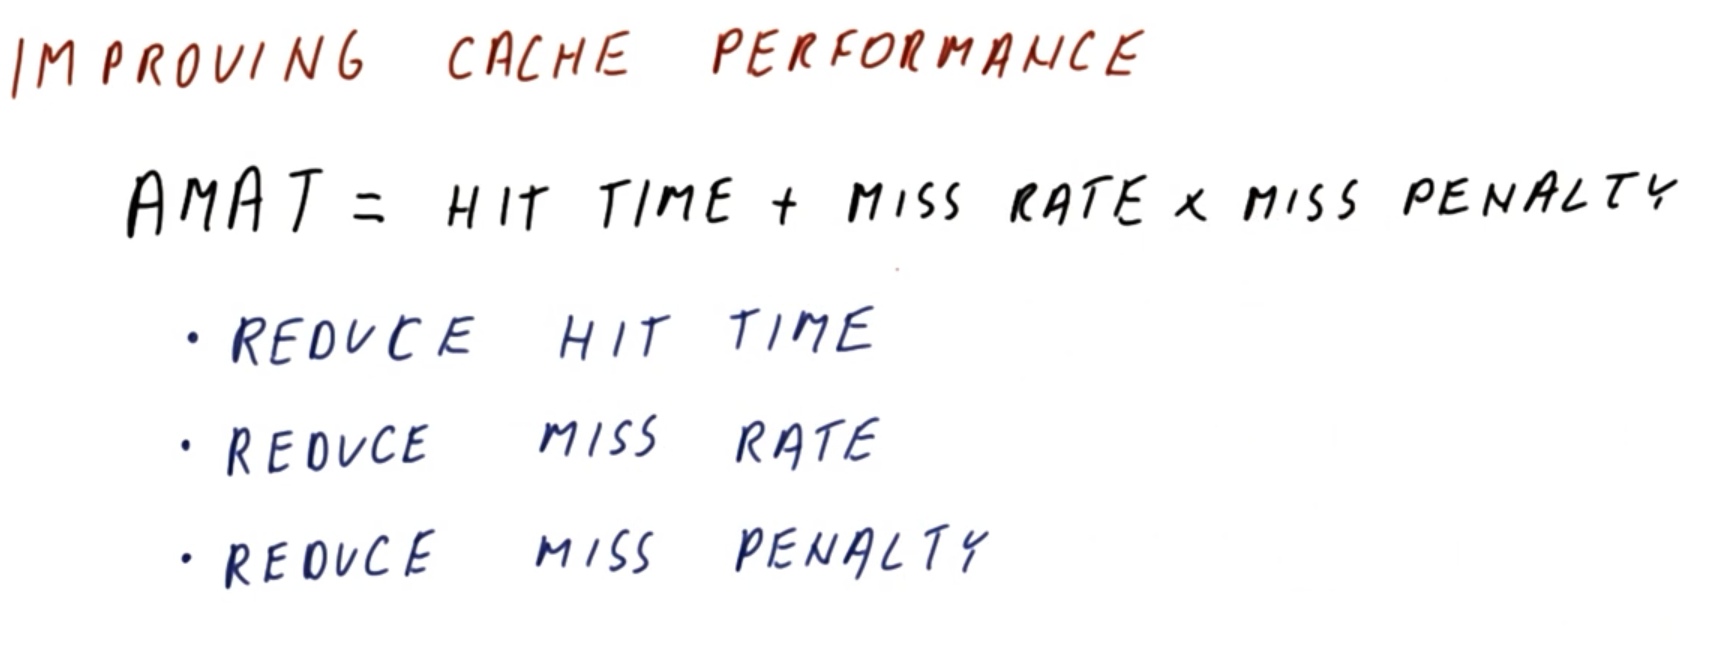 IMPROVING CACHE PERFORMANCE
AMAT = HIT TIME + MISS RATE x MISS PENALTY
• REDUCE HIT TIME
• REDUCE MISS RATE
• REDUCE MISS PENALTY